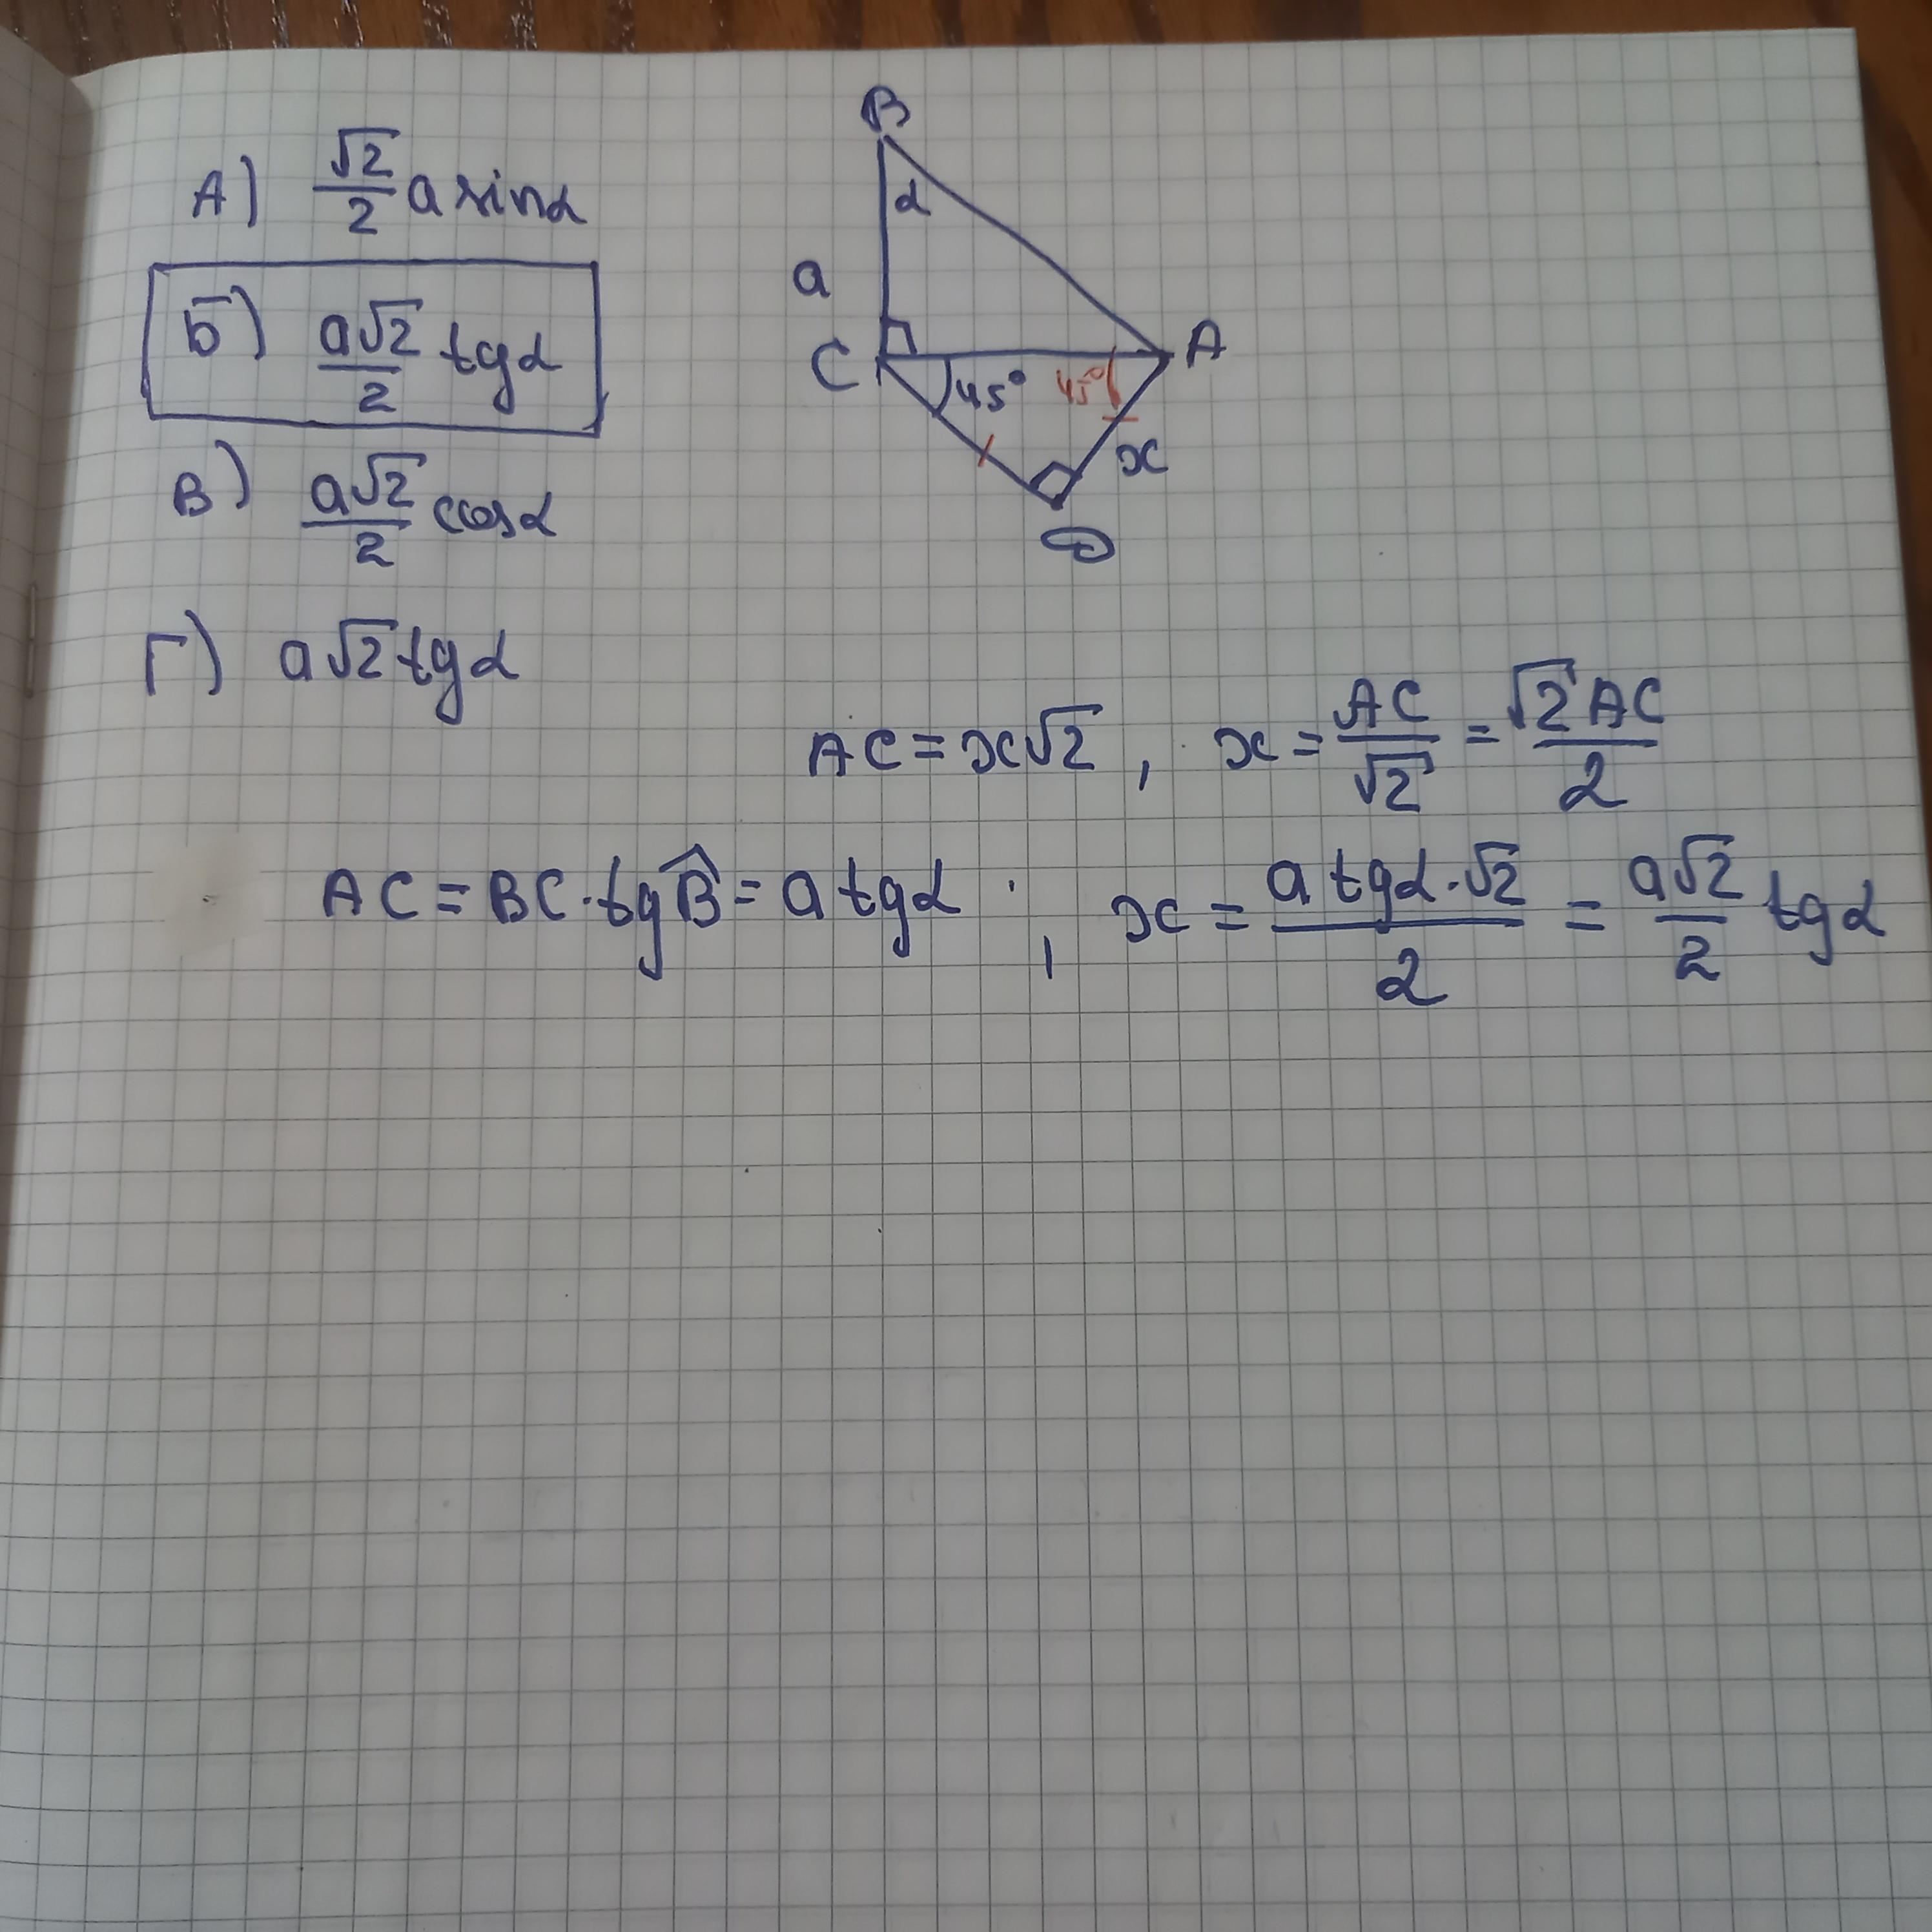 А) √2/2 a sinα
Б) a√2/2 tgα
В) a√2/2 cosα
Г) a√2 tgα
B
α
a
C
A
45°
45°
x
D
AC = x√2 , x = AC/√2 = √2 AC/2
AC = BC · tg B̂ = a tgα ; x = a tgα · √2/2 = a√2/2 tgα